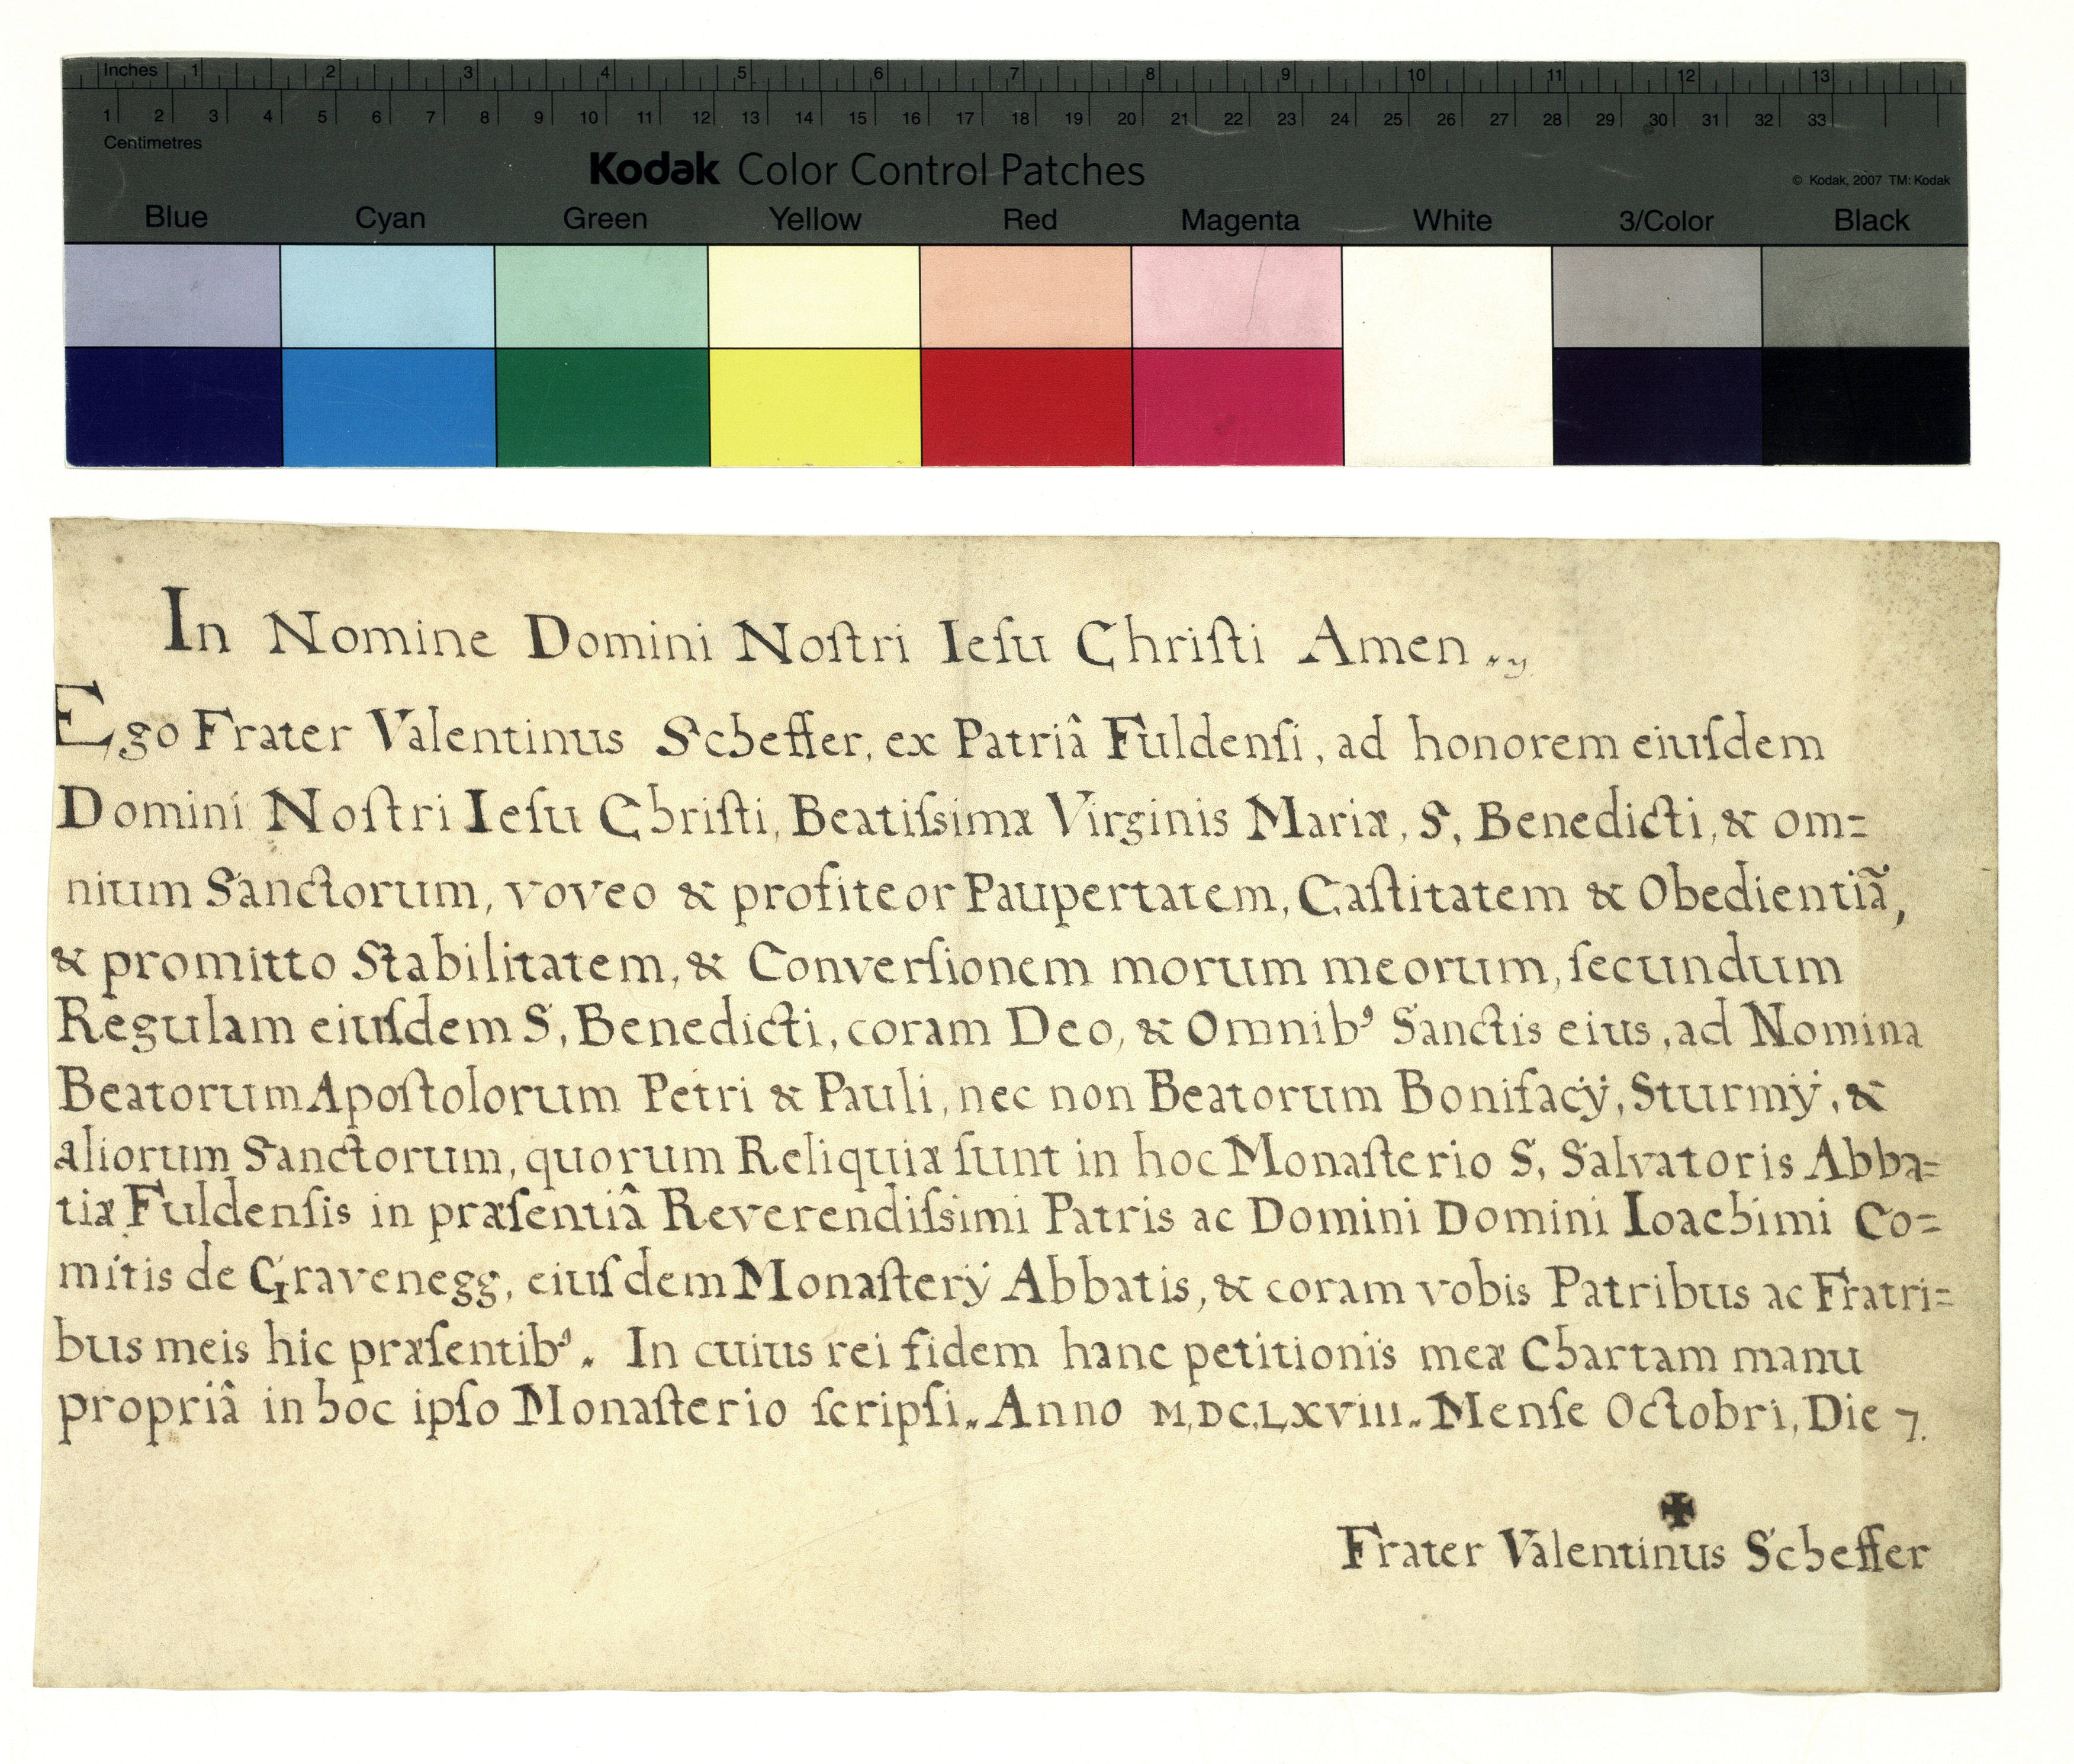 Inches 1 2 3 4 5 6 7 8 9 10 11 12 13
1 2 3 4 5 6 7 8 9 10 11 12 13 14 15 16 17 18 19 20 21 22 23 24 25 26 27 28 29 30 31 32 33
Centimetres
Kodak Color Control Patches
© Kodak, 2007 TM: Kodak
Blue Cyan Green Yellow Red Magenta White 3/Color Black
In Nomine Domini Noſtri Ieſu Chriſti Amen
Ego Frater Valentinus Scheffer, ex Patriâ Fuldenſi, ad honorem eiuſdem
Domini Noſtri Ieſu Chriſti, Beatiſsimæ Virginis Mariæ, S. Benedicti, & om=
nium Sanctorum, voveo & profiteor Paupertatem, Caſtitatem & Obedientiã,
& promitto Stabilitatem, & Converſionem morum meorum, ſecundum
Regulam eiuſdem S. Benedicti, coram Deo, & Omnibꝰ Sanctis eius, ad Nomina
Beatorum Apoſtolorum Petri & Pauli, nec non Beatorum Bonifacÿ, Sturmÿ, &
aliorum Sanctorum, quorum Reliquiæ ſunt in hoc Monaſterio S. Salvatoris Abba=
tiæ Fuldenſis in præſentiâ Reverendiſsimi Patris ac Domini Domini Ioachimi Co=
mitis de Gravenegg, eiuſdem Monaſterÿ Abbatis, & coram vobis Patribus ac Fratri=
bus meis hic præſentibꝰ. In cuius rei fidem hanc petitionis meæ Chartam manu
propriâ in hoc ipſo Monaſterio ſcripſi. Anno M.DC.LXVIII. Menſe Octobri, Die 7.
✠
Frater Valentinus Scheffer